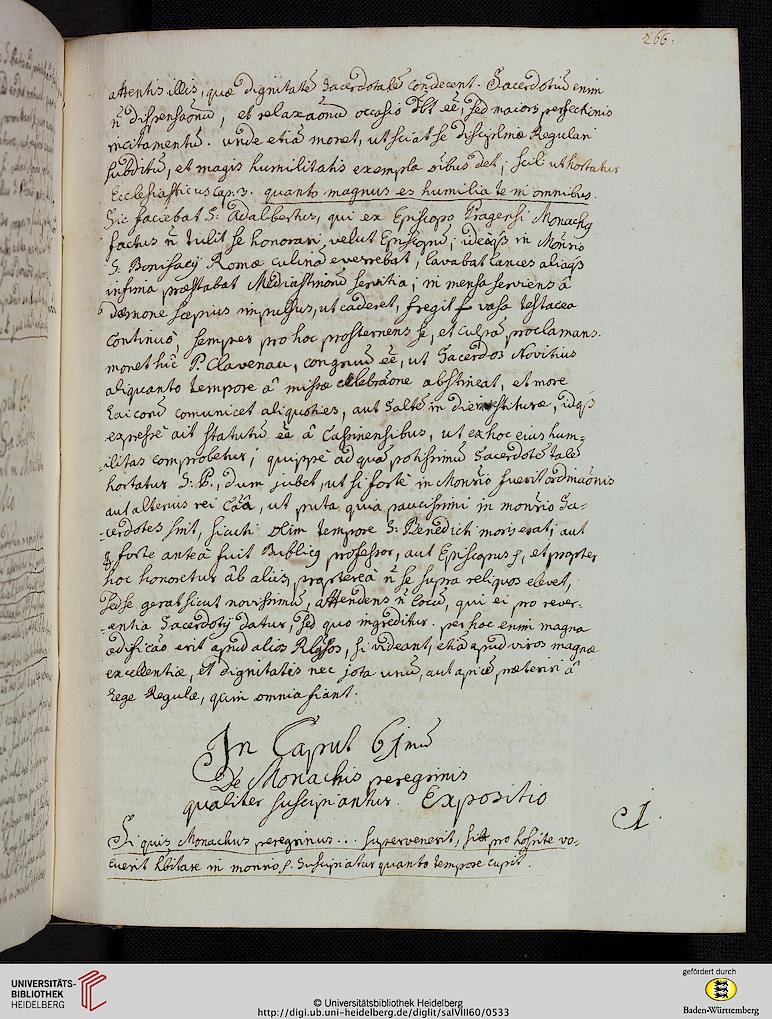 266.
attentis illis, quæ dignitatē Sacerdotalē condecent. Sacerdotiū enim
n̄ dispensaōnū, et relaxaōnū occasio dbt eē, sed maioris perfectionis
incitamentū. unde etiā monet, ut sciat se disciplinæ Regulari
subditū, et magis humilitatis exempla oībus det; scil: ut hortatur
Ecclesiasticus cap: 3. quanto magnus es humilia te in omnibus.
Sic faciebat S: Adalbertus, qui ex Episcopo Pragensi Monachꝯ
factus n̄ tulit se honorari, velut Episcopū; ideoqꝫ in Monrio
S: Bonifacij Romæ culinā everrebat, lavabat lances aliaqꝫ
infima præstabat Mediastinorū servitia; in mensa serviens â
dæmone sæpius impulsus, ut caderet, fregit vasa testacea
continuo, semper pro hoc prosternens se, et culpā proclamans.
monet hîc P. Clavenau, congruū eē, ut Sacerdos Novitius
aliquanto tempore â missæ celebraōne abstineat, et more
Laicorū comunicet aliquoties, aut saltē in die vestituræ, idqꝫ
expressè ait statutū eē â Cassinensibus, ut ex hoc eius hum=
ilitas comprobetur; quippe ad quā potissimū Sacerdotē talē
hortatur S: B., dum jubet, ut si fortè in Monrio fuerit ordinaōnis
aut alterius rei caâ, ut puta quia paucissimi in monrio Sa=
cerdotes sint, sicuti olim tempore S: Benedicti moris erat; aut
forte anteà fuit Publicꝯ professor, aut Episcopus, et propter
hoc honoretur âb aliis, proptereà n̄ se supra reliquos elevet,
sed se gerat sicut novissimū, attendens n̄ locū, qui ei pro rever=
entia Sacerdotij datur, sed quo ingreditur. per hoc enim magna
ædificāo erit apud alios Rlgsos, si videant, etiā apud viros magnæ
excellentiæ, et dignitatis nec jota unū, aut apicē præteriri â
Lege Regulæ, quin omnia fiant.
In Caput 61mū
De Monachis peregrinis
qualiter suscipiantur. Expositio
I.
Si quis Monachus peregrinus... supervenerit, si pro hospite vo=
luerit hbitare in monrio. suscipiatur quanto tempore cupit.
UNIVERSITÄTS-
BIBLIOTHEK
HEIDELBERG
© Universitätsbibliothek Heidelberg
http://digi.ub.uni-heidelberg.de/diglit/salVIII60/0533
gefördert durch
Baden-Württemberg